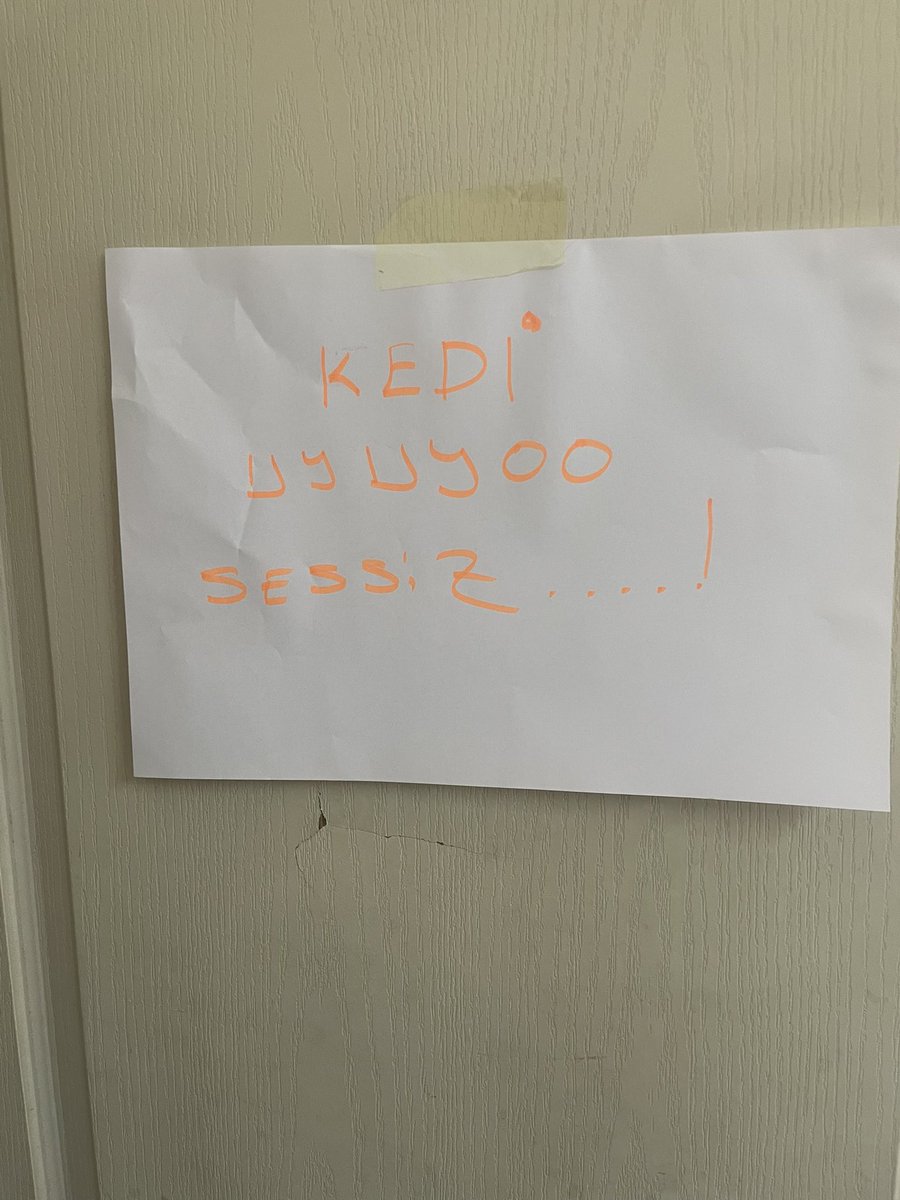 KEDİ
UYUYOO
SESSiZ.....!